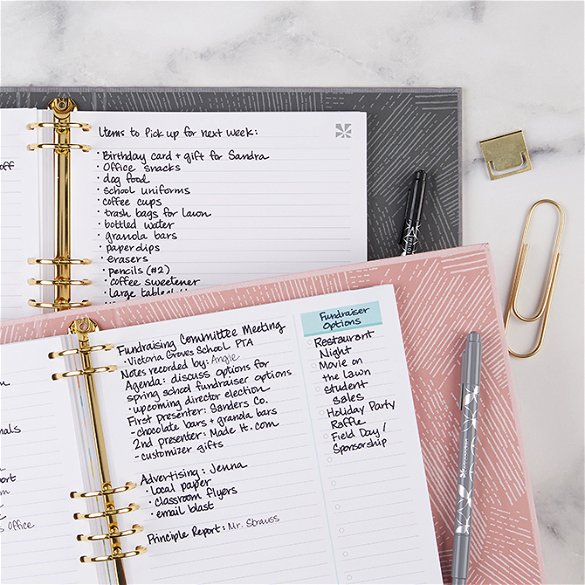 off
Items to pick up for next week:
• Birthday card + gift for Sandra
• Office snacks
• dog food
• school uniforms
• coffee cups
• trash bags for Lawn
• bottled water
• granola bars
• paperclips
• erasers
• pencils (#2)
• coffee sweetener
• Large table
Fundraising Committee Meeting
• Victoria Groves School PTA
Notes recorded by: Angie
Agenda: discuss options for
spring school fundraiser options
• upcoming director election
First presenter: Sanders Co.
- chocolate bars + granola bars
2nd presenter: Made It.com
- customizer gifts
Advertising: Jenna
• local paper
• classroom flyers
• email blast
Principle Report: Mr. Strauss
Fundraiser
Options
Restaurant
Night
Movie on
the Lawn
Student
Sales
Holiday Party
Raffle
Field Day /
Sponsorship
nals
port
es
s Office